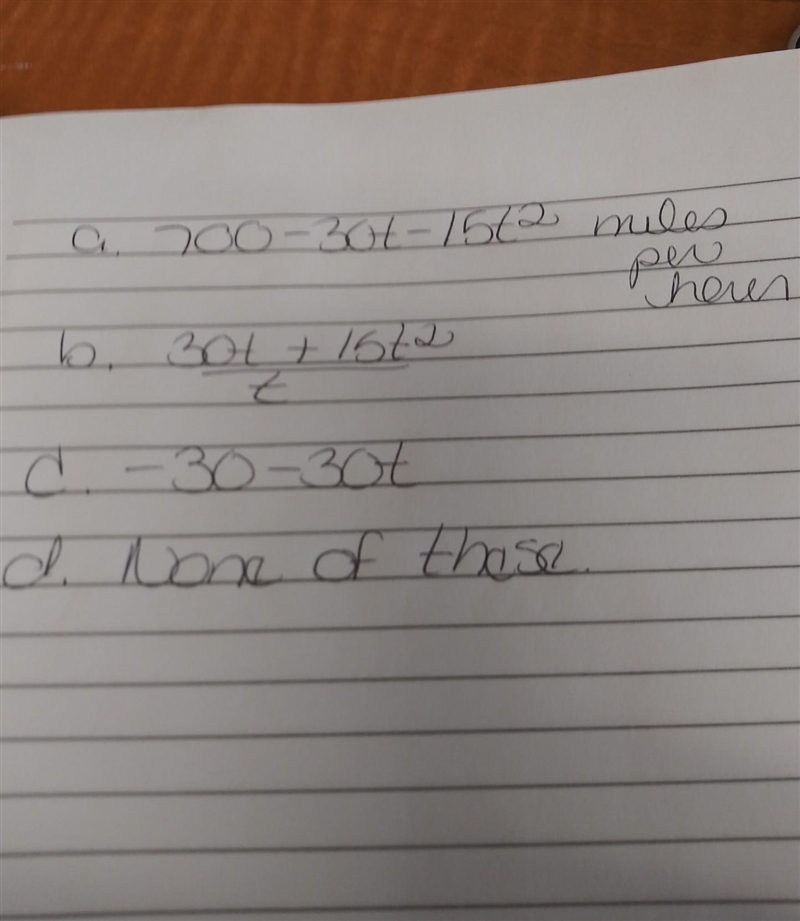 a. 700-30t-15t² miles
per
hour
b. 30t + 15t²
t
c. -30-30t
d. None of these.